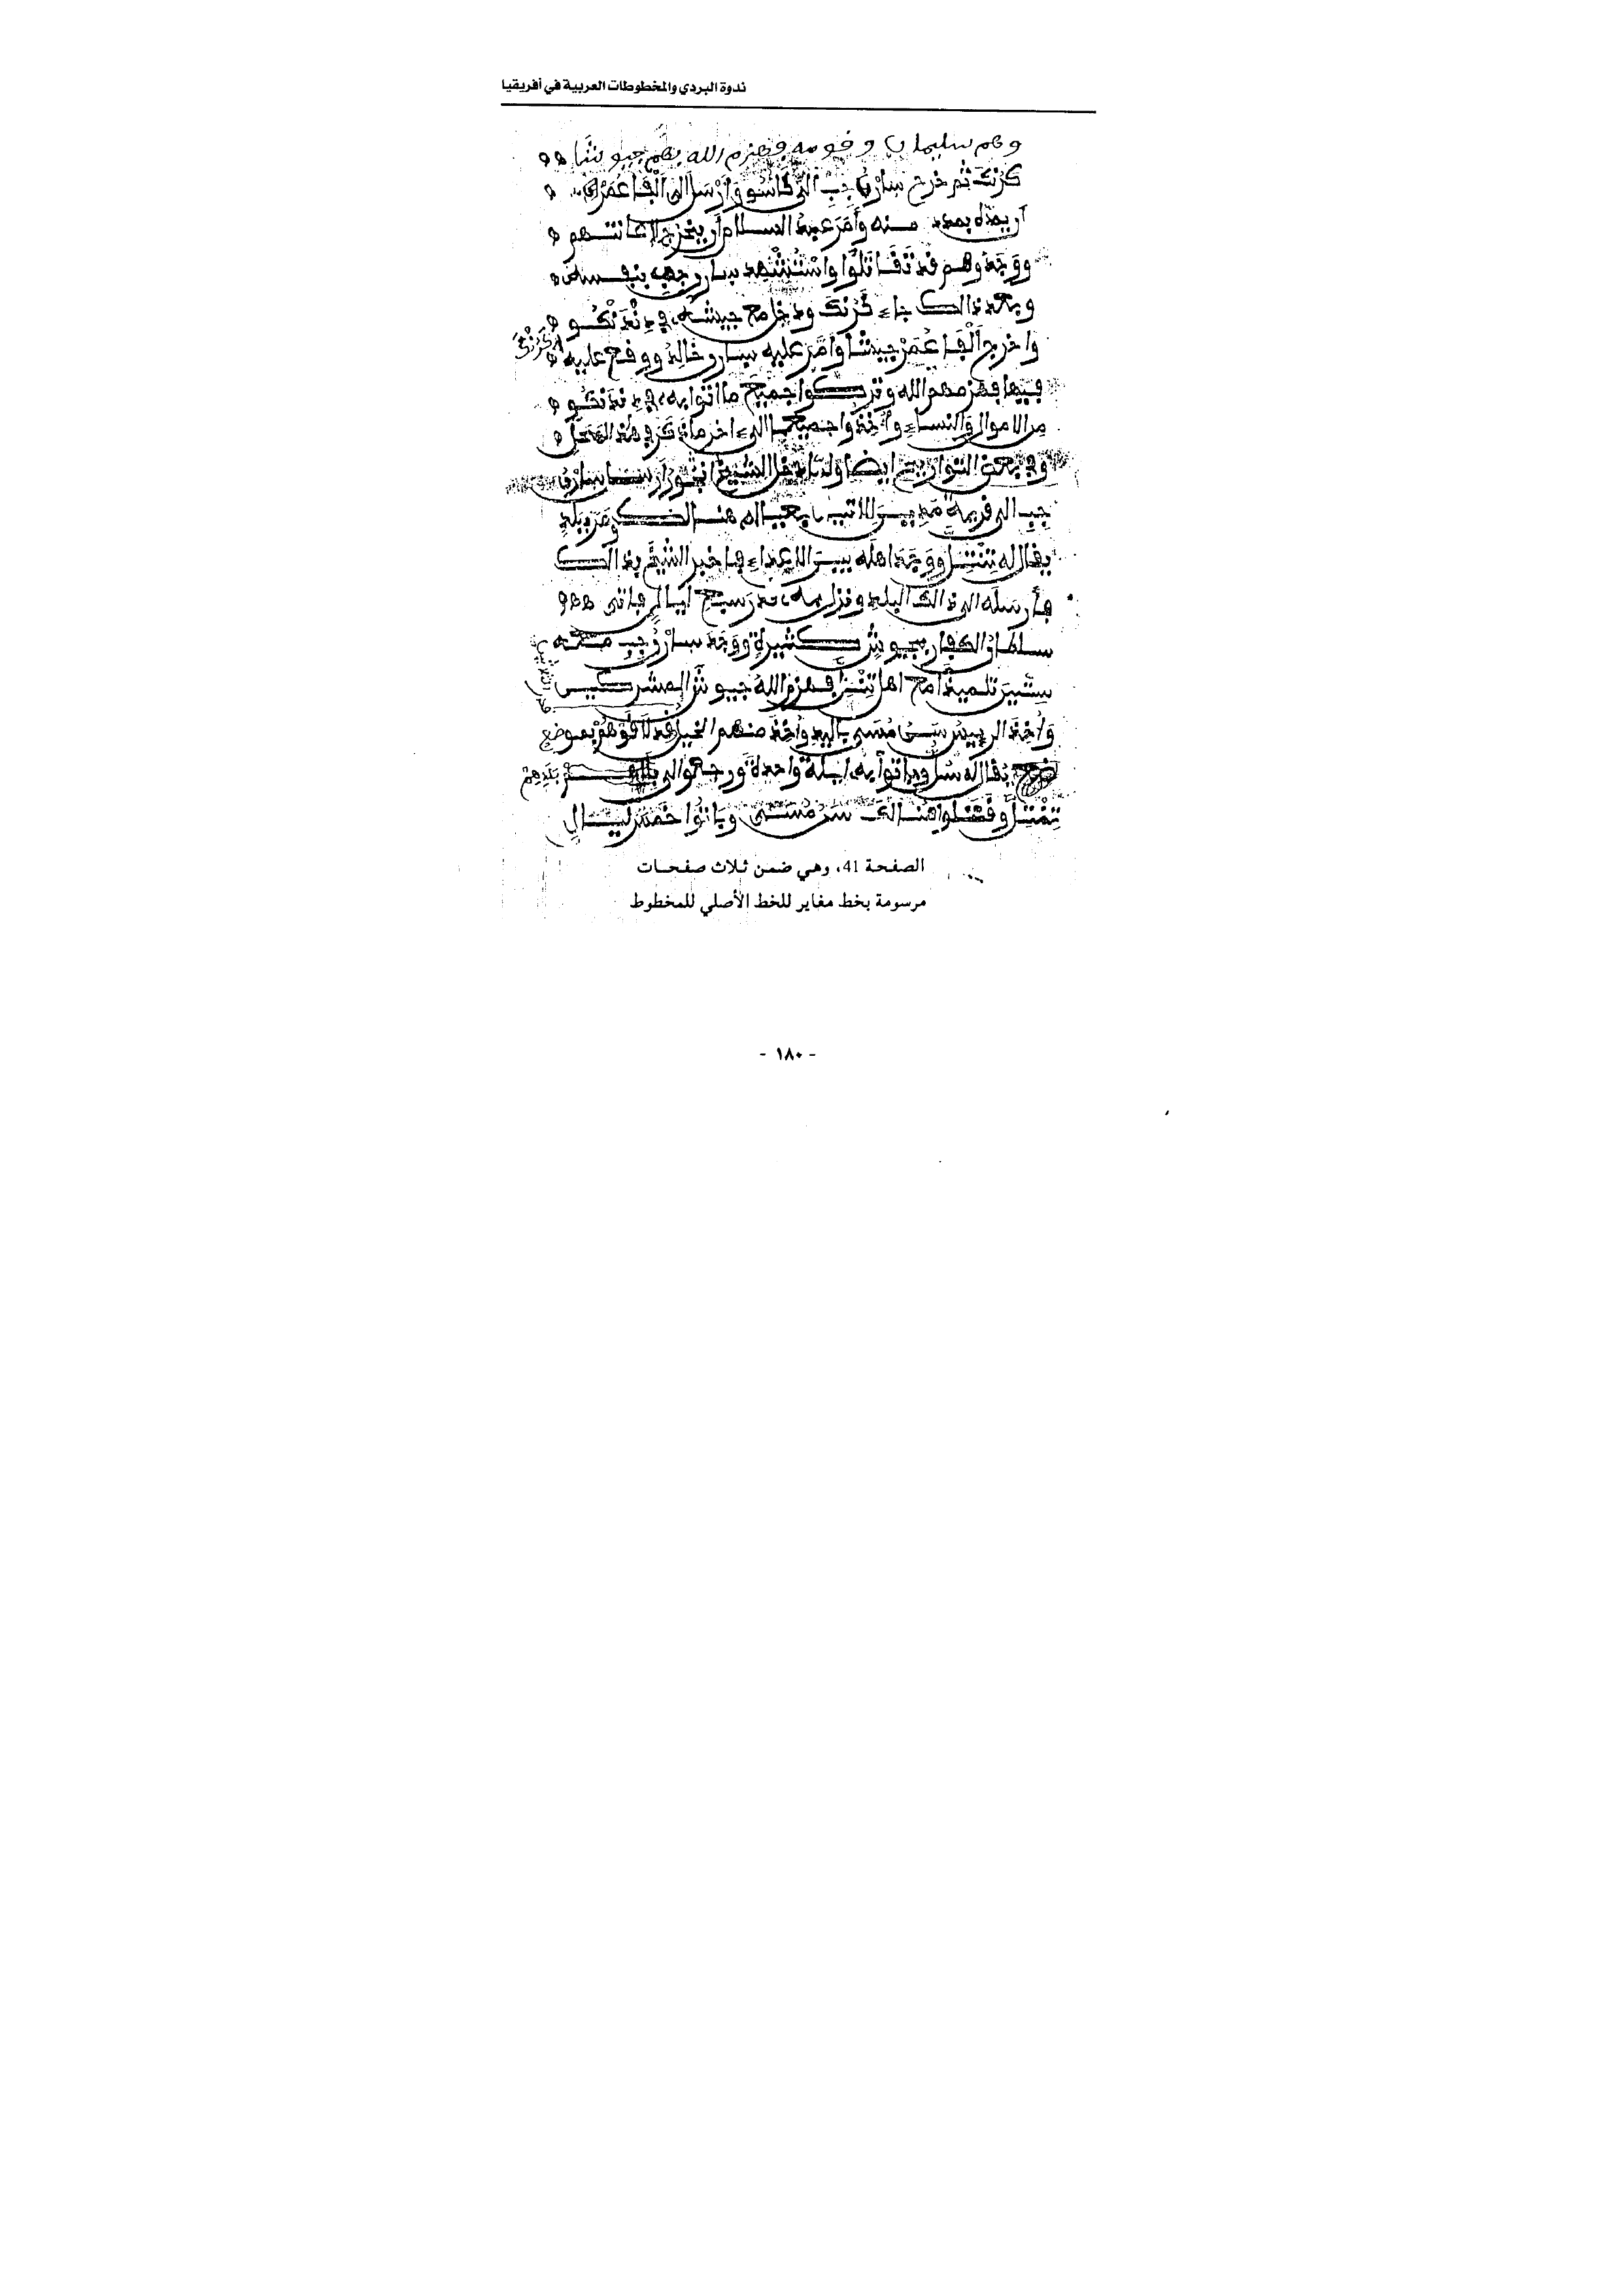 ندوة البردي والمخطوطات العربية في أفريقيا
وهم سليمان وقومه فهزم الله بهم جيوشا
كرنك ثم خرج سارن جب الى كاسو وأرسل الى ألفا عمر
أن يمده بمدد منه وأمر عبد السلام أن يخرج لإعانتهم
ووجدوهم قد تقاتلوا واستشهد سارن جب بنفسه
وبعد ذالك جاء كرنك ودخل مع جيشه في دندنكو
واخرج ألفا عمر جيشا وامر عليه سارن خالد ووقع عليه
فيها فهزمهم الله وتركوا جميع ما اتوا به في دندنكو
من الاموال والنساء وأخذوا جميعها الى ءاخر ما ذكر في هذا المحل
وفي بعض التواريخ ايضا ولما دخل الشيخ انيور ارسل سارن
جب الى قرية لياتيه بعياله هنالك ومر ببلد
يقال له ووجد اهله بين الاعداء فاخبر الشيخ بذالك
فأرسله الى ذالك البلد ونزل به قدر سبع ليال فاتى
سلطان الكفار بجيوش كثيرة ووجد سارن جب معه
ستين تلميذا مع اهل فهزم الله جيوش المشركين
وأخذ الرييس مسى باليد وأخذ منهم الخيل قد لاقوهم بموضع
يقال له وباتوا به ليلة واحدة ورجعوا الى بلدهم
وقتلوا هنالك مسى وباتوا خمس ليال
الصفحة 41، وهي ضمن ثلاث صفحات
مرسومة بخط مغاير للخط الأصلي للمخطوط
- ١٨٠ -